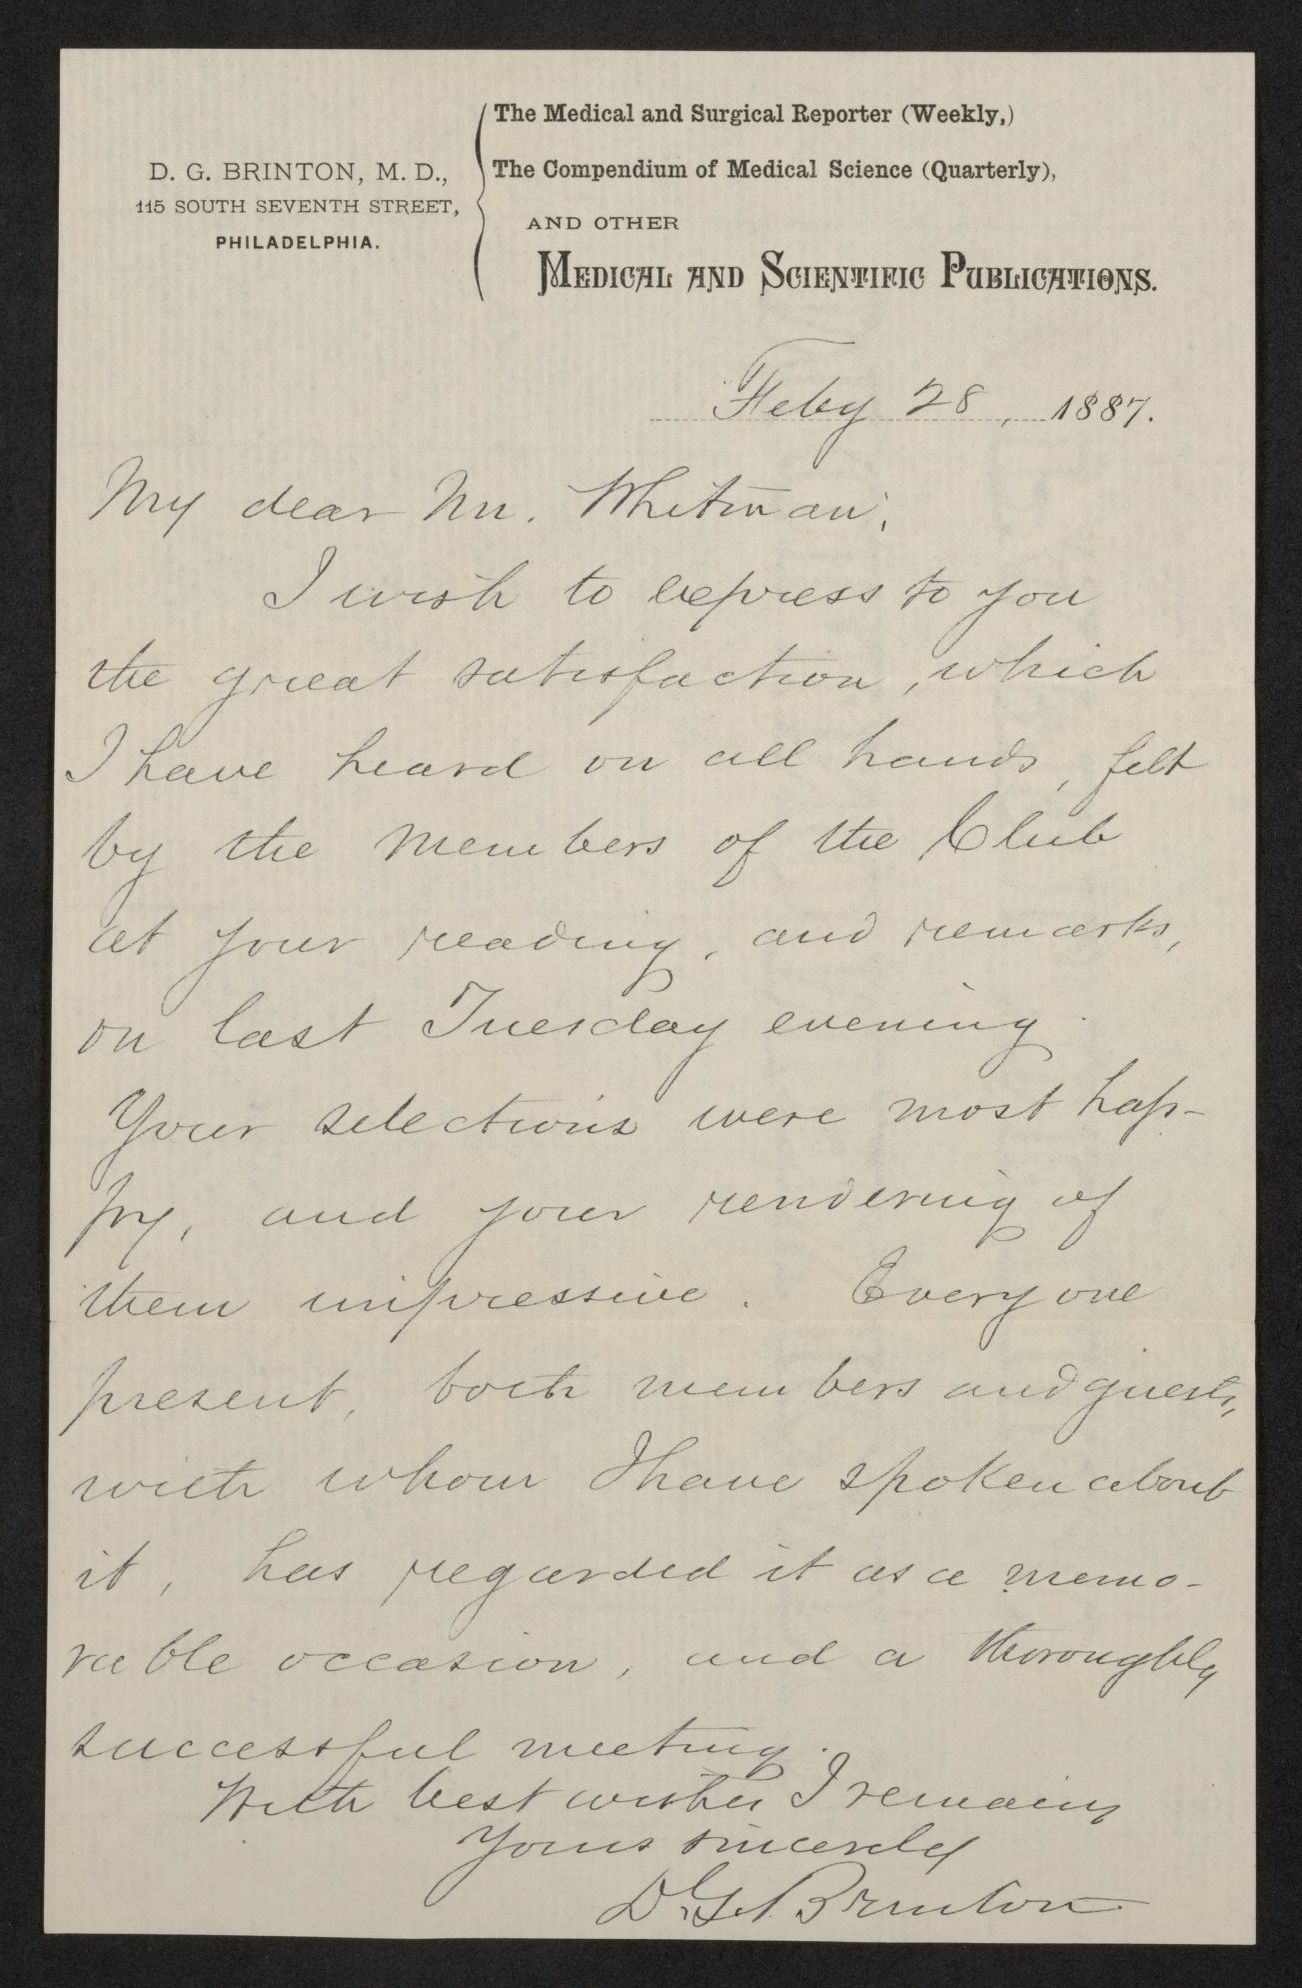 D. G. BRINTON, M. D.,
115 SOUTH SEVENTH STREET,
PHILADELPHIA.
The Medical and Surgical Reporter (Weekly,)
The Compendium of Medical Science (Quarterly),
AND OTHER
MEDICAL AND SCIENTIFIC PUBLICATIONS.
Feby 28, 1887.
My dear Mr. Whitman;
I wish to express to you
the great satisfaction, which
I have heard on all hands, felt
by the members of the Club
at your reading, and remarks,
on last Tuesday evening.
Your selections were most hap-
py, and your rendering of
them impressive. Every one
present, both members and guests,
with whom I have spoken about
it, has regarded it as a memo-
rable occasion, and a thoroughly
successful meeting.
With best wishes I remain
Yours sincerely
D. G. Brinton